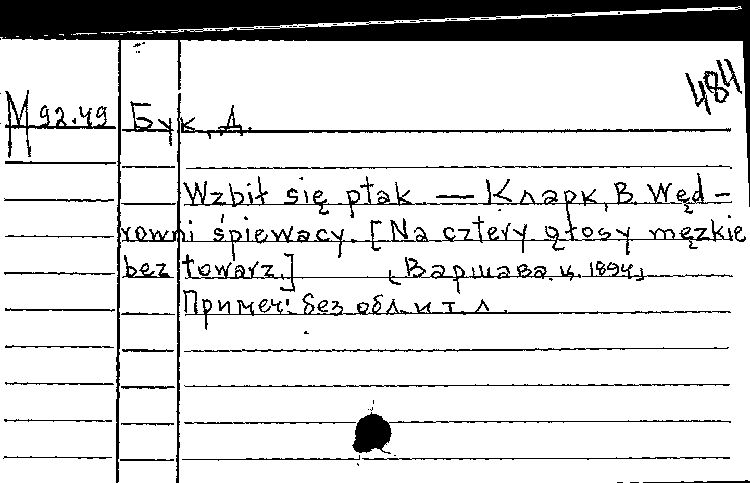 484
М 92.49 Бук, Д.
Wzbił się ptak — Кларк, В. Węd-
rowni śpiewacy. [Na cztery głosy męzkie
bez towarz.] [Варшава. ц. 1894]
Примеч: без обл. и т. л.